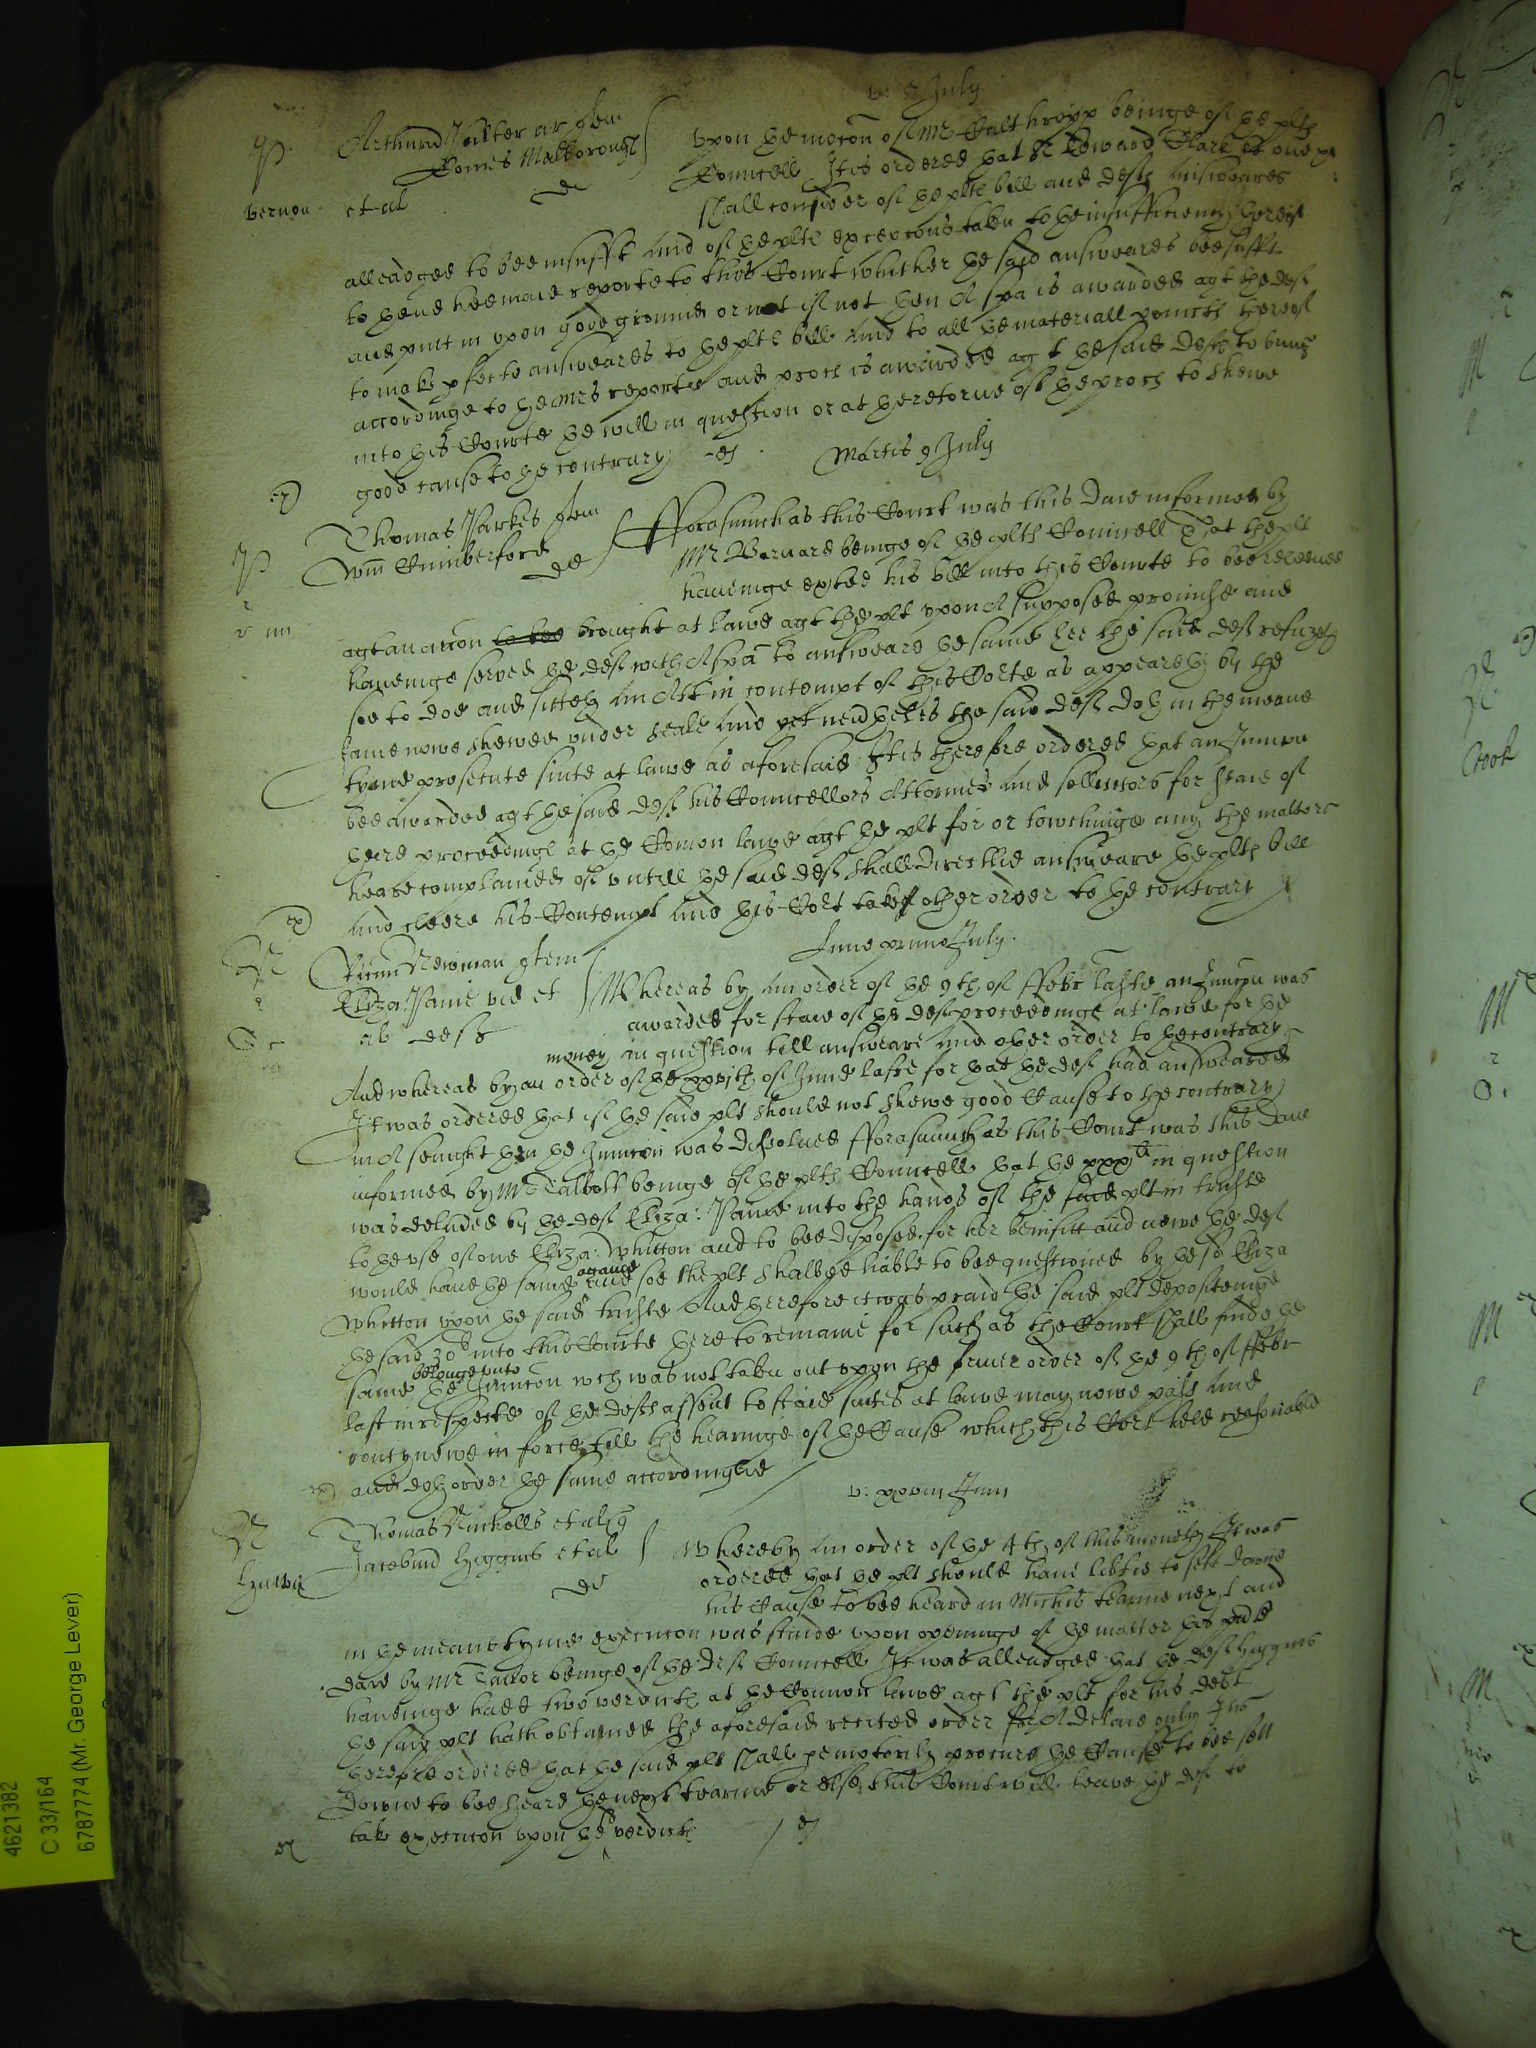 v: 5 July
Arthurus ar quer
Comes Malborough
de
vernon et al
vpon the motion of Mr Calthropp beinge of the plts
Councell It is ordered that Sr Edward Clark et one
shall consider of the plts bill and defts answeares
alleadged to bee insufft And of the plts excepcons taken to the insufficiency thereof
to thend hee maie reporte to this Court whither the said answeares bee sufft
and putt in vpon good ground or not if not then A spa is awarded agt the deft
to make pfecte answeares to the plts bill And to all the materiall pointes thereof
accordinge to the Mrs reporte and proces is awarded agt the said defts to bring
into this Courte the will in question or at the retorne of the proces to shewe
good cause to the contrary
Martis 9 July
Thomas Parkes quer
Willm Cumberford
de
Fforasmuch as this Court was this daie informed by
Mr Barnard beinge of the plts Councell That the plt
haueinge exhted his bill into this Courte to bee releeued
agt an accon to bee brought at lawe agt the plt vpon A supposed promise and
haueinge serued the deft with A spa to answeare the same hee the said deft refuzeth
soe to doe and sitteth An Attt in contempt of this Corte as appeareth by the
same nowe shewed vnder seale And yet neuertheles the said deft doth in the meane
tyme prosecute suite at lawe as aforesaid It is therefore ordered that an Iniunc
bee awarded agt the said deft his Councellors Attornies And sollicitors for staie of
theire proceedings at the Comon lawe agt the plt for or towchinge any the matters
heare complained of vntill the said deft shall directlie answeare the plts bill
And cleere his Contempt And this Cort take other order to the contrary
Lune primo July
Newman quer
Eliza: Paine vid et
al defts
Whereas by An order of the 9th of Ffebr laste an Iniuncon was
awarded for staie of the defts proceedings at lawe for the
money in question till answeare And other order to the contrary
And whereas by an order of the xxvjth of June laste for that the deft had answeared
It was ordered that if the said plt should not shewe good Cause to the contrary
in A senight then the Iniuncon was dissolued Fforasmuch as this Court was this daie
informed by Mr Talbott beinge of the plts Councell that the xxxli in question
was deliuered by the deft Eliza: Paine into the hands of the said plt in truste
to the vse of one Eliza: Whitton and to bee disposed for her benifitt and nowe the deft
would haue the same againe and soe the plt shalbee liable to bee questioned by the sd Eliza
Whitton vpon the said truste And therefore it was praid the said plt depositeinge
the said 30li into this Courte here to remaine for such as the Court shall finde the
same belonge vnto the Iniuncon wch was not taken out vpon the former order of the 9th of Ffebr
last in respecte of the defts assent to staie suites at lawe may nowe passe And
contynewe in force till the hearinge of the Cause which this Cort held reasonable
and doth order the same accordinglie
v: xxviij Junij
Thomas Nicholls et al quer
Jacobum Higgins et al
de
Whereby An order of the 4th of this moneth It was
ordered that the plt should haue libtie to sett downe
his Cause to bee heard in Michis tearme next and
in the meane tyme execucon was staied vpon openinge of the matter this pnte
daie by Mr Tailor beinge of the defts Councell It was alleadged that the deft Higgins
haueinge hadd two verdicts at the Comon lawe agt the plt for his debt
the said plt hath obtained the aforesaid recited order for A delaie only It is
therefore ordered that the said plt shall peremptorily procure the Cause to bee sett
downe to bee heard the next tearme or else this Court will leaue the deft to
take execucon vpon the sd verdicts
4621382
C 33/164
6787774 (Mr. George Lever)